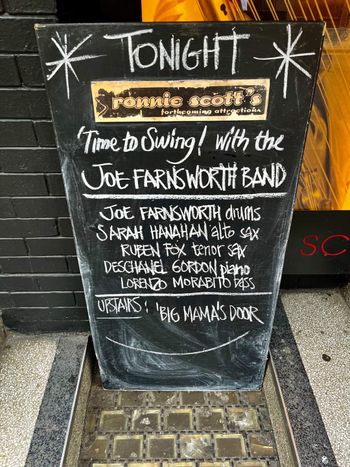 TONIGHT
ronnie scott's
forthcoming attractions
'Time to Swing! with the
JOE FARNSWORTH BAND
JOE FARNSWORTH drums
SARAH HANAHAN alto sax
RUBEN FOX tenor sax
DESCHANEL GORDON piano
LORENZO MORABITO bass
UPSTAIRS: 'BIG MAMA'S DOOR
SC